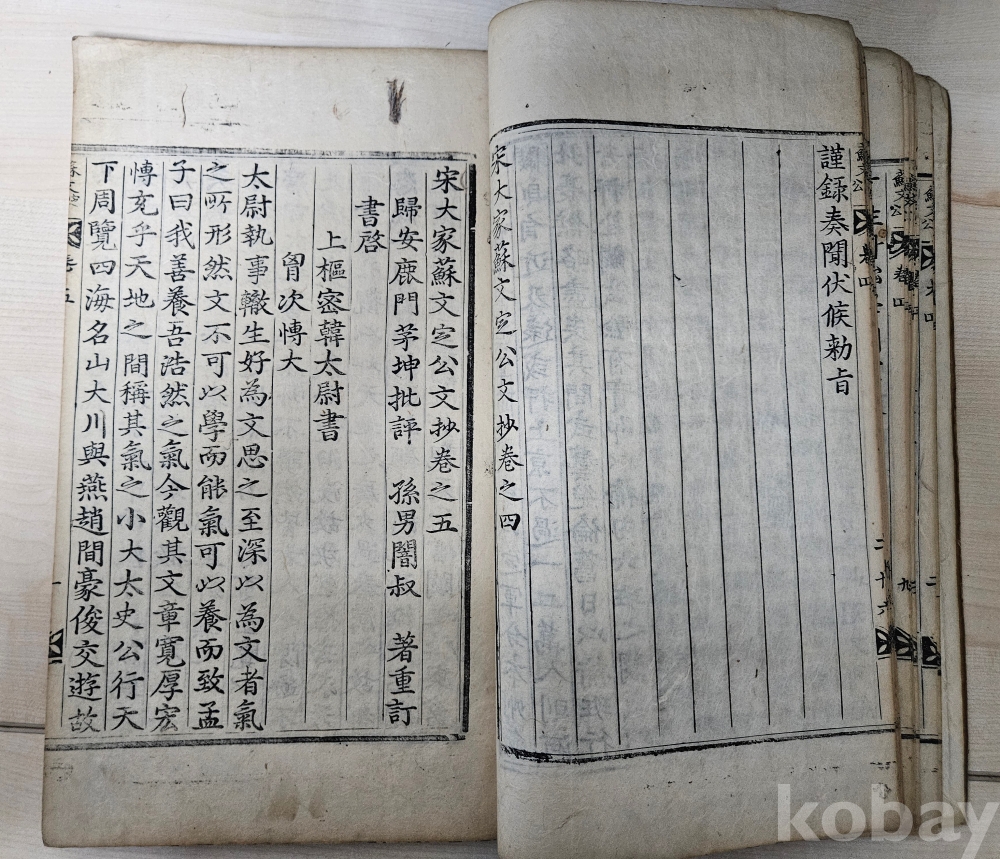 謹録奏聞伏候勅旨
宋大家蘇文定公文抄卷之四
宋大家蘇文定公文抄卷之五
歸安鹿門茅坤批評 孫男闇叔 著重訂
書啓
上樞密韓太尉書
胷次愽大
太尉執事轍生好為文思之至深以為文者氣
之所形然文不可以學而能氣可以養而致孟
子曰我善養吾浩然之氣今觀其文章寬厚宏
愽充乎天地之間稱其氣之小大太史公行天
下周覽四海名山大川與燕趙間豪俊交遊故
kobay